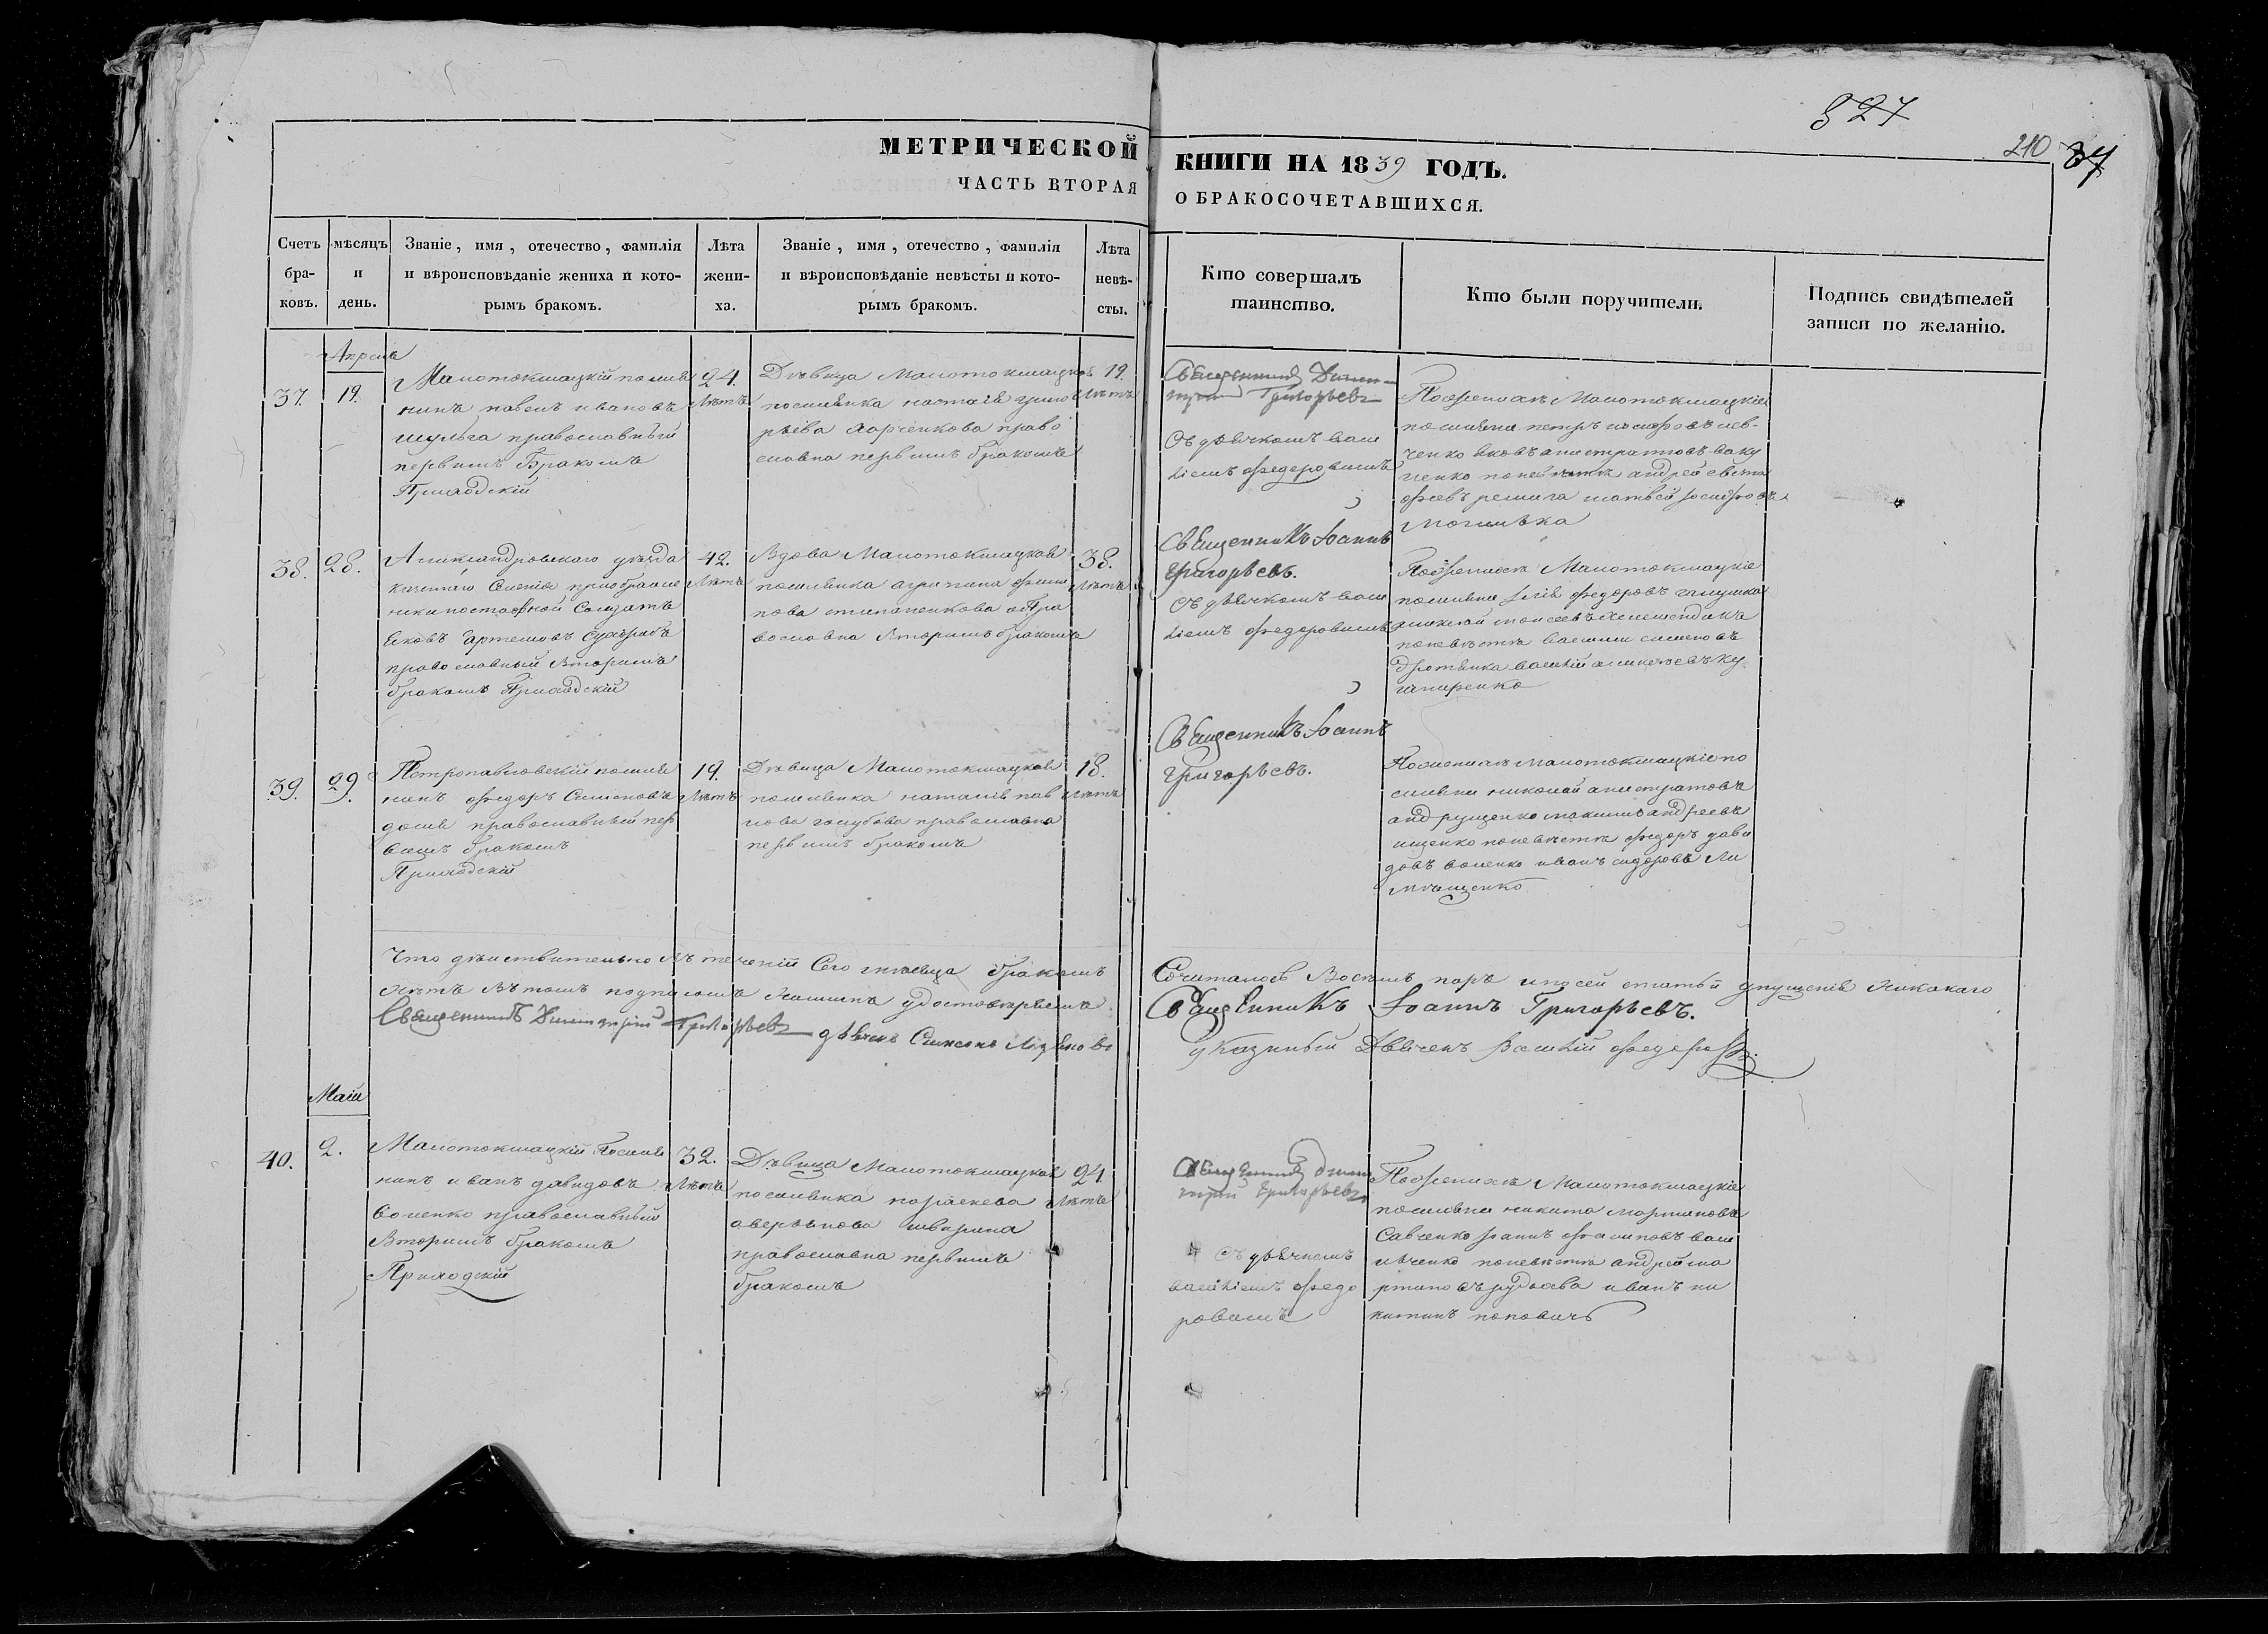 327
210 34
МЕТРИЧЕСКОЙ КНИГИ НА 1839 ГОДЪ.
ЧАСТЬ ВТОРАЯ О БРАКОСОЧЕТАВШИХСЯ.
Счетъ бра-ковъ.
мѣсяцъ и день.
Званіе, имя, отечество, фамилія и вѣроисповѣданіе жениха и кото-рымъ бракомъ.
Лѣта жени-ха.
Званіе, имя, отечество, фамилія и вѣроисповѣданіе невѣсты и кото-рымъ бракомъ.
Лѣта невѣ-сты.
Кто совершалъ таинство.
Кто были поручители.
Подпись свидѣтелей записи по желанію.
Апреля
37.
19.
Малотокмацкій поселя
нинъ павелъ ивановъ
шульга православный
первымъ Бракомъ
Приходскій
24.
Лѣтъ
Дѣвица Малотокмацкая
поселянка настасія григо
рьева харченкова право
славна первымъ бракомъ
19.
Лѣтъ
Священникъ Дими-
трий Григорьевъ
Съ дьячкомъ васи
ліемъ федоровымъ
По женихѣ Малотокмацкіе
поселяне петръ иосифовъ шев-
ченко яковъ калистратовъ
ценко по невѣстѣ андрей евста
фіевъ матвей іосифовъ
Могилька
38.
28.
Александровскаго уѣзда
казеннаго Селенія преображе
нки отставной Солдатъ
Яковъ артемовъ
православный Вторымъ
бракомъ Приходскій
42.
Лѣтъ
Вдова Малотокмацкая
поселянка агрипина фили
пова степаненкова Пра
вославна Вторымъ бракомъ
38.
Лѣтъ
Священникъ Іоаннъ
Григорьевъ.
Съ дьячкомъ васи
ліемъ федоровымъ
По женихѣ Малотокмацкіе
поселяне Ілія федоровъ галушка
алексѣй моисеевъ
по невѣстѣ василій семеновъ
василій алексѣевъ ку
чиренко
39.
29.
Петропавловскій поселя
нинъ федоръ Симеоновъ
доля православный пер
вымъ бракомъ
Приходскій
19.
Лѣтъ
Дѣвица Малотокмацкая
поселянка наталія пав
лова голубова православна
первымъ бракомъ
18.
Лѣтъ
Священникъ Іоаннъ
Григорьевъ.
По женихѣ Малотокмацкіе по
селяне николай калистратовъ
андрущенко максимъ андреевъ
ищенко по невѣстѣ федоръ дави
довъ воленко иванъ сидоровъ
Что дѣйствительно Въ теченіи Сего мѣсяца бракомъ Сочиталось Восемь паръ и по сей статьи упущенія Никакаго
нѣтъ Въ томъ подписомъ Нашимъ удостовѣряемъ
Священникъ Димитрій Григорьевъ Священникъ Іоаннъ Григорьевъ.
дьячекъ Симеонъ
указный Дьячекъ Василій федоровъ.
Маія
40.
2.
Малотокмацкій Поселя
нинъ иванъ давидовъ
воленко православный
Вторымъ бракомъ
Приходскій
32.
Лѣтъ
Дѣвица Малотокмацкая
поселянка параскева
аверьянова
православна первымъ
бракомъ
24
Лѣтъ
Священникъ Дими
трий Григорьевъ
Съ дьячкомъ
василіемъ федо
ровымъ
По женихѣ Малотокмацкіе
поселяне никита мартиновъ
Савченко филиповъ васи
льченко по невѣстѣ андрей ма
ртиновъ иванъ ни
китинъ поповичъ